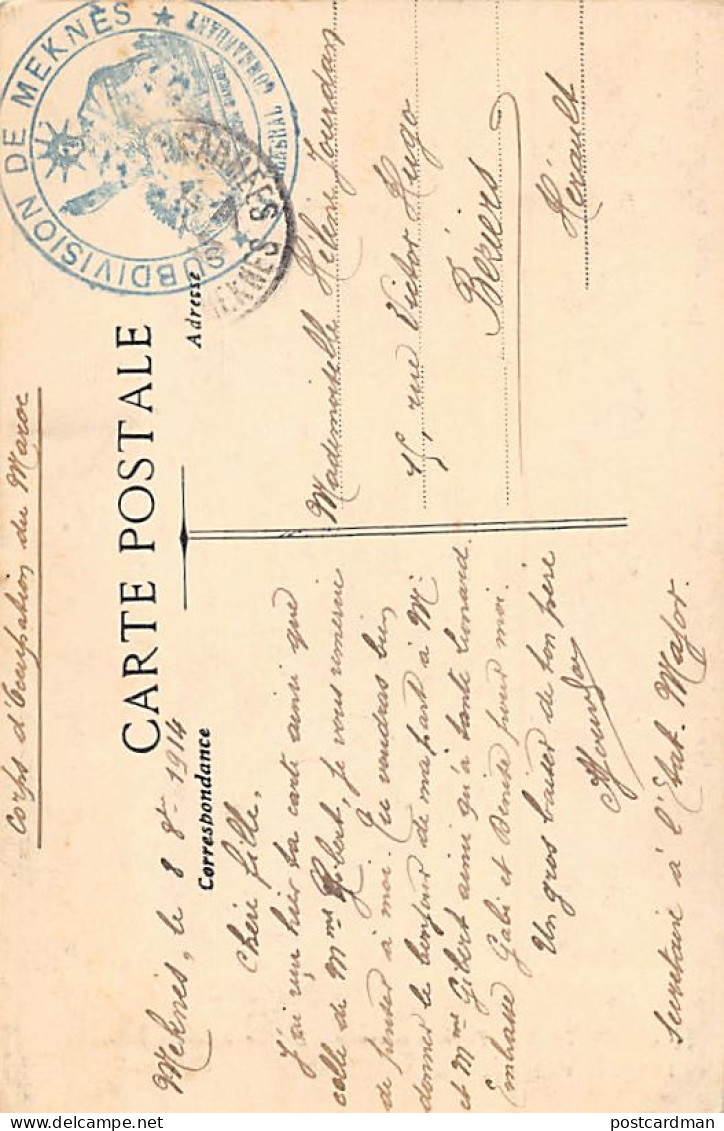 Corps d'Occupation du Maroc
SUBDIVISION DE MEKNÈS ★
COMMANDANT
MEKNES
CARTE POSTALE
Correspondance
Adresse
Meknès, le 8 8bre 1914
Chère fille,
J'ai reçu hier ta carte ainsi que
celle de Mme Gibert, je vous remercie
de penser à moi. Tu voudras bien
donner le bonjour de ma part à Mr
et Mme Gibert ainsi qu'à tante Léonard.
Embrasse Gabi et Denise pour moi.
Un gros baiser de ton frère
Secrétaire à l'Etat-Major.
Mademoiselle Jourdan
15, rue Victor Hugo
Béziers
Hérault
postcardman